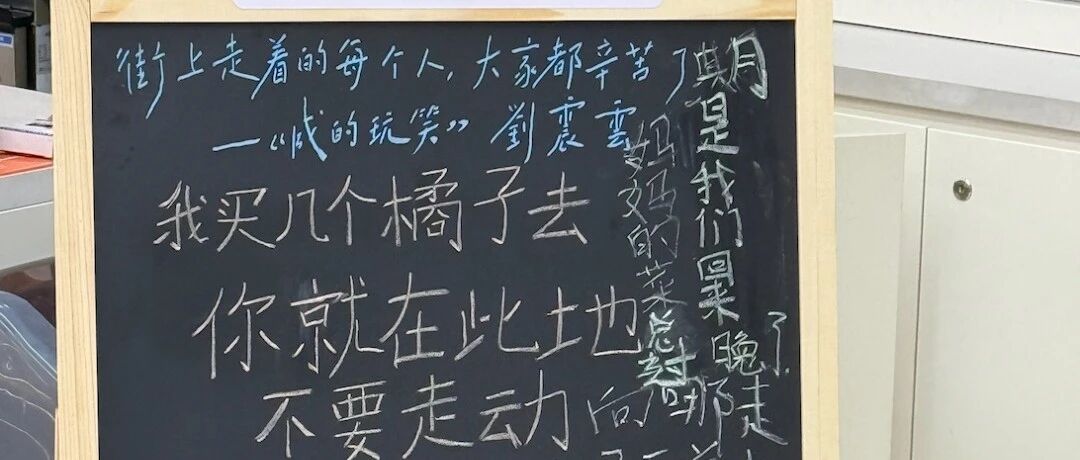 街上走着的每个人，大家都辛苦了
—“咸的玩笑” 劉震雲
我买几个橘子去
你就在此地
不要走动
妈妈的菜
总
是我们
晚了
向
那走